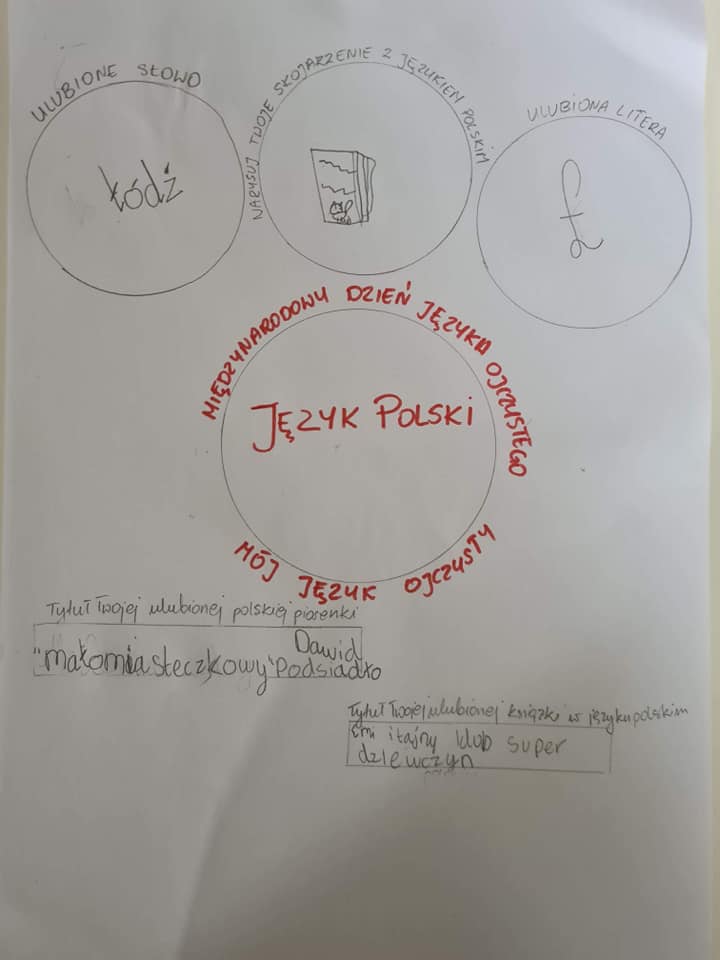 ULUBIONE SŁOWO
łódź
NARYSUJ TWOJE SKOJARZENIE Z JĘZYKIEM POLSKIM
ULUBIONA LITERA
ł
MIĘDZYNARODOWY DZIEŃ JĘZYKA OJCZYSTEGO
JĘZYK POLSKI
MÓJ JĘZYK OJCZYSTY
Tytuł Twojej ulubionej polskiej piosenki
"małomiasteczkowy" Dawid
Podsiadło
Tytuł Twojej ulubionej książki w języku polskim
Emi i tajny klub super
dziewczyn